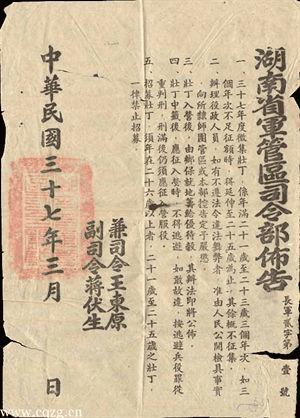 湖南省軍管區司令部佈告
長軍貳字第壹號
一、三十七年度徵集壯丁，係年滿二十一歲至二十三歲三個年次，如三
個年次不足征額時，得延伸至二十五歲為止，其餘概不征集。
二、辦理役政人員，如有不遵法令違法舞弊者，准由人民公開檢具事實
向所隸師團管區或本部控告定予嚴懲。
三、壯丁入營後，由鄉保就地籌給優待穀，其辦法印將公佈。
四、壯丁中籤後，應征入營時，不得逃避，如敢故違，按逃避兵役罪從
重判刑，刑滿後仍須應征入營服役。
五、招募壯丁，須年在二十六歲以上者，二十一歲至二十五歲之壯丁，
一律禁止招募。
兼司令王東原
副司令蔣伏生
中華民國三十七年三月 日
www.cqzg.cn